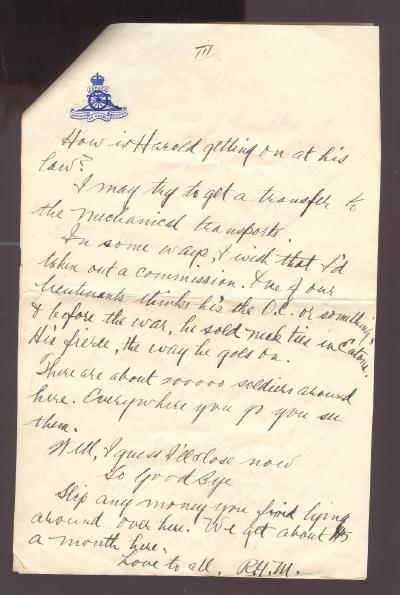 III
How is Harold getting on at his
law?
I may try to get a transfer to
the mechanical transports.
In some ways, I wish that I'd
taken out a commission. One of our
lieutenants thinks his the O.C. or something,
& before the war, he sold neck ties in Eatons.
His fierce, the way he goes on.
There are about 200000 soldiers around
here. Everywhere you go you see
them.
Well, I guess I'll close now
So Good Bye
Slip any money you find lying
around over here. We get about
a month here.
Love to all, R.H.M.